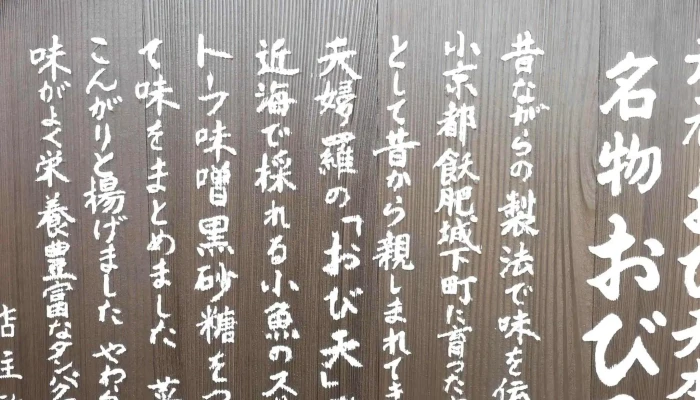 名物おび
昔ながらの製法で味を伝
小京都飫肥城下町に育った
として昔から親しまれてき
天婦羅の「おび天」
近海で採れる小魚のス
トーフ味噌黒砂糖を
て味をまとめました
こんがりと揚げました やわら
味がよく栄養豊富なタンパク
店主